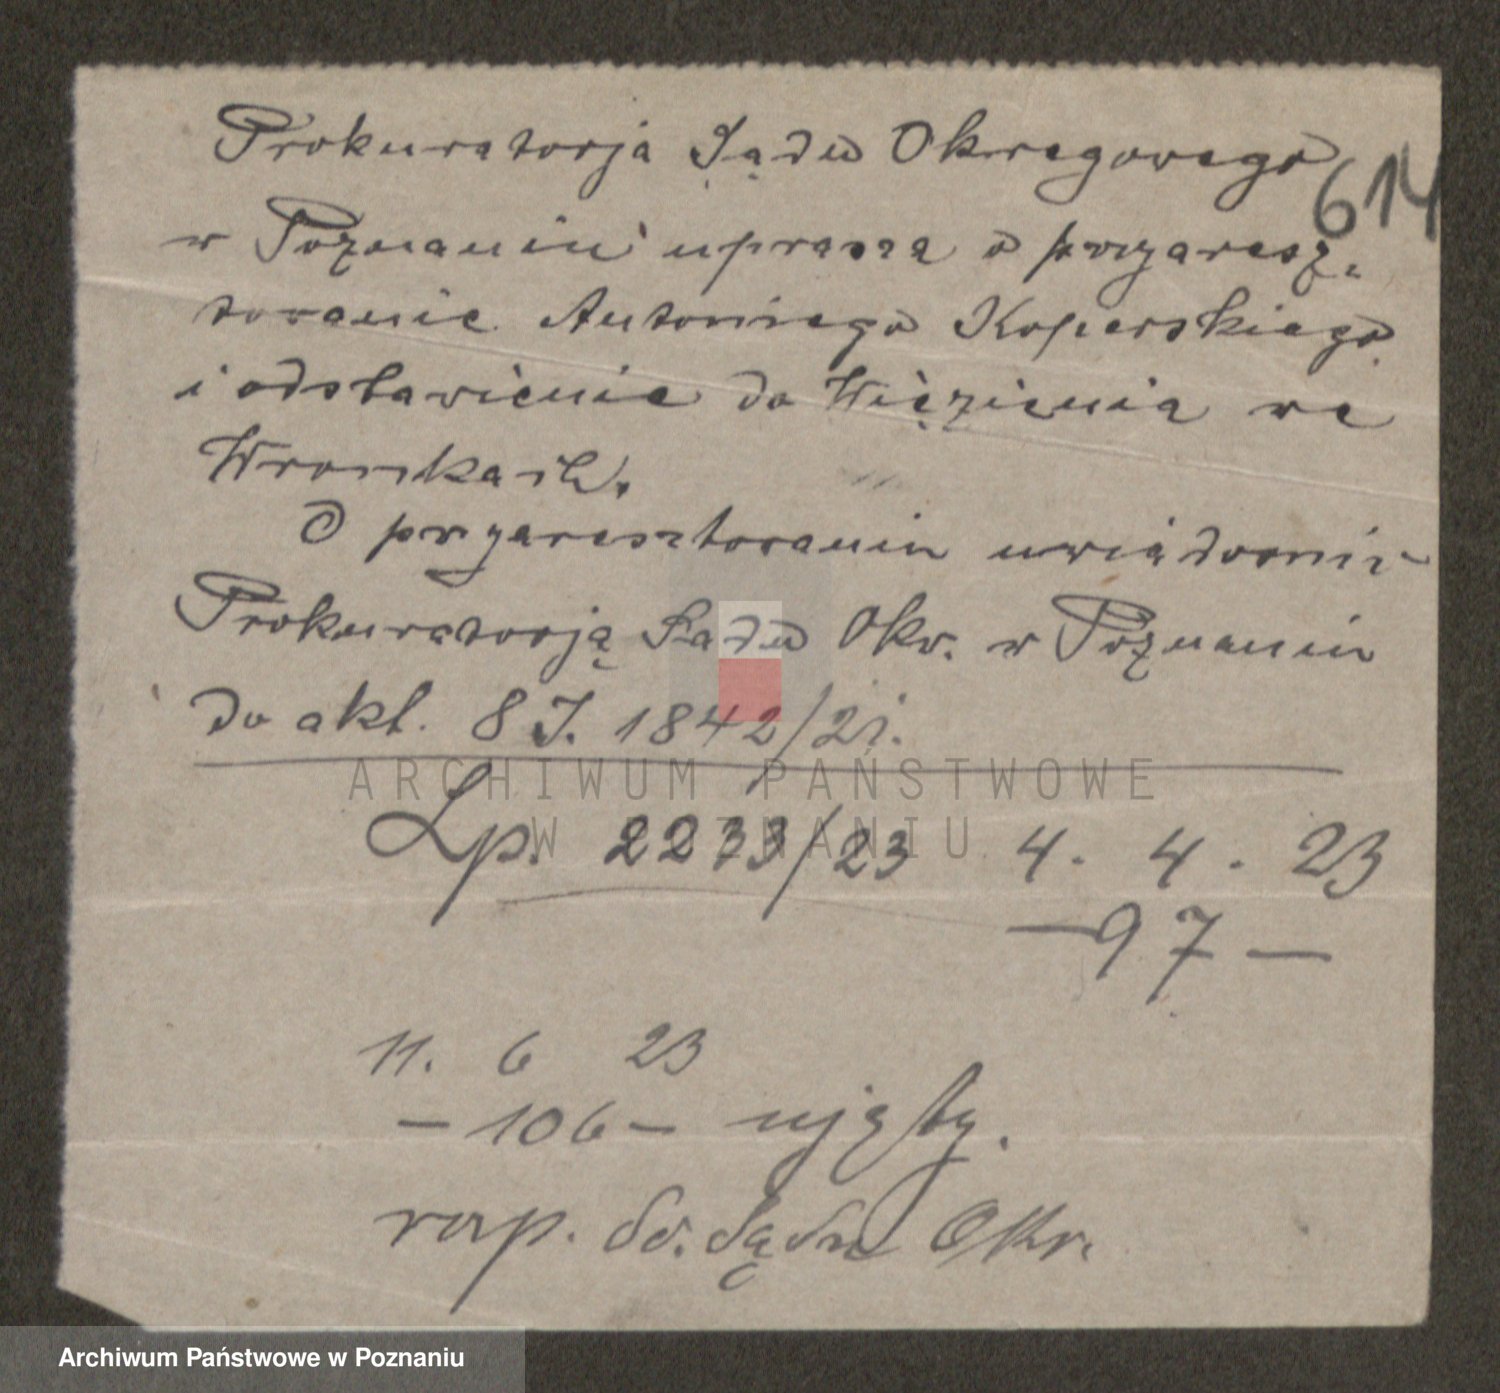 Prokuratorja Sądu Okręgowego
614
w Poznaniu uprasza o przyaresz-
towanie Antoniego Koperskiego
i odstawienie do Więzienia we
Wronkach.
O przyaresztowaniu uwiadomić
Prokuratorją Sądu Okr. w Poznaniu
do akt. 8 J. 1842/21.
ARCHIWUM PAŃSTWOWE
W POZNANIU
Lp. 2273/23 4. 4. 23
— 97 —
11. 6 23
— 106 — ujęty.
rap. do. Sądu Okr.
Archiwum Państwowe w Poznaniu